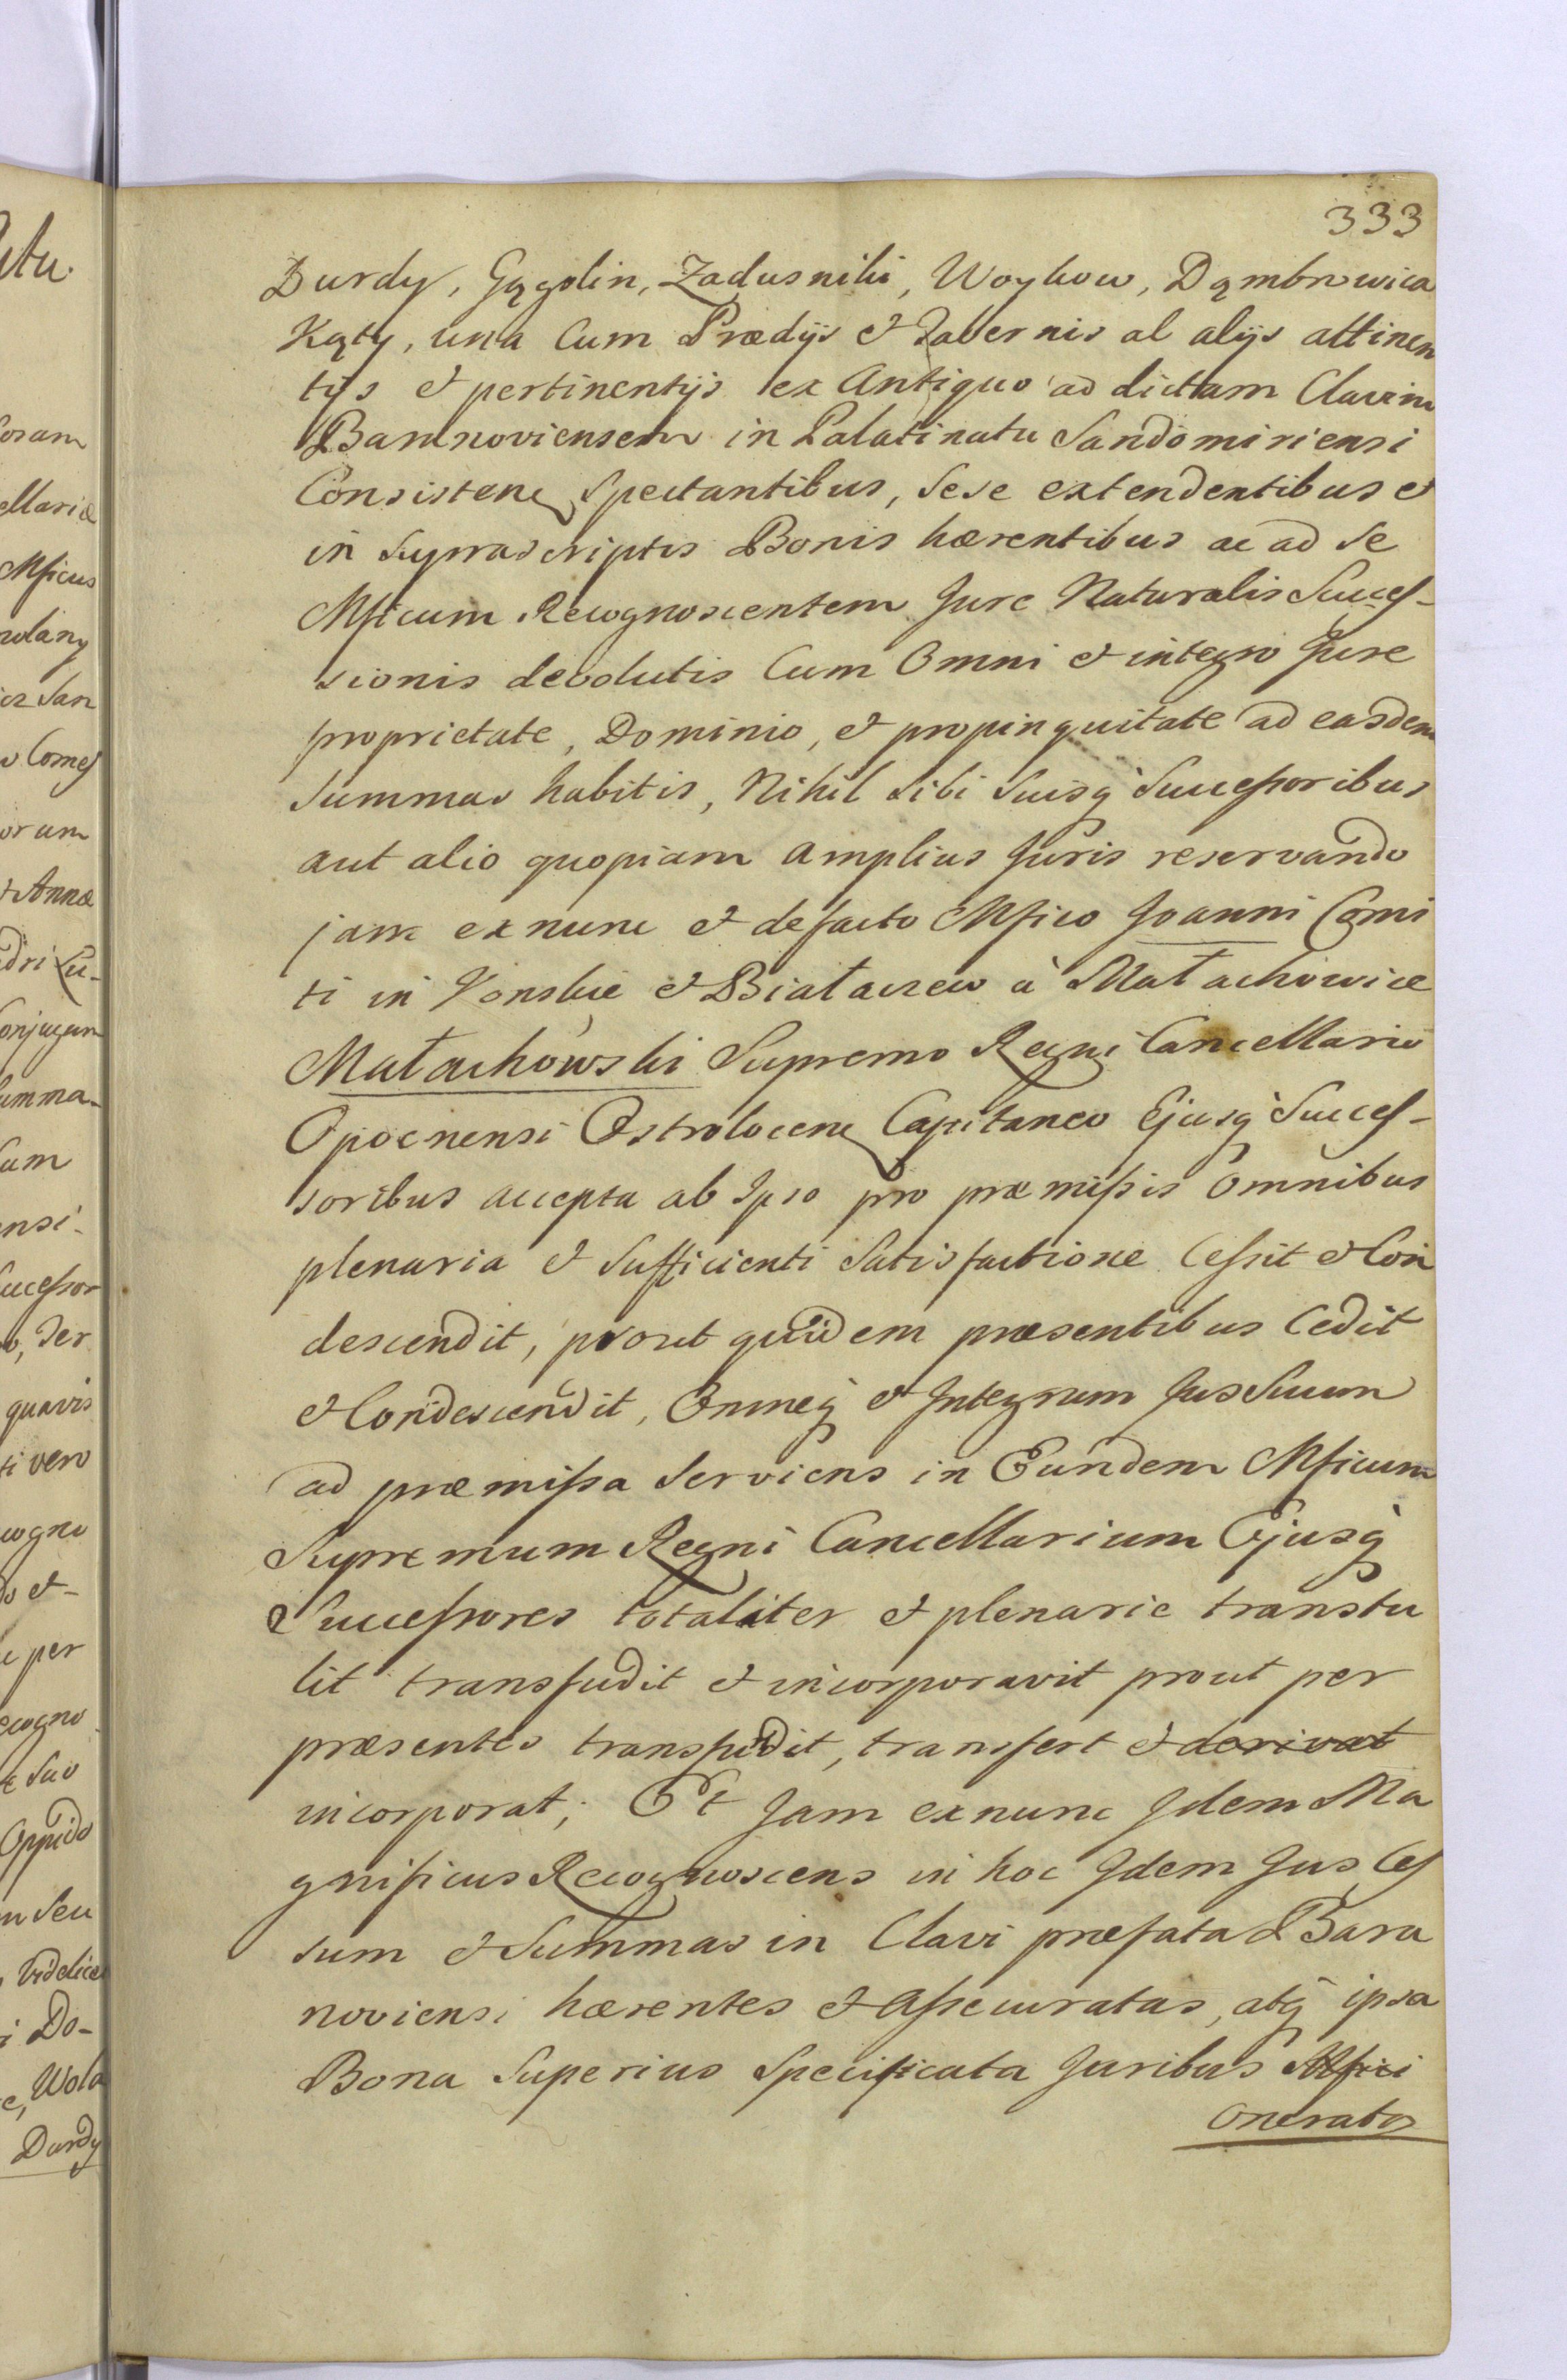 333
Durdy, Gągolin, Zadusniki, Woykow, Dąmbrowica
Kąty, una Cum Prædijs et Tabernis al alijs attinen
tijs et pertinentijs ex Antiquo ad dictam Clavim
Baranoviensem in Palatinatu Sandomiriensi
Consisten Spectantibus, Sese extendentibus et
in Supra scriptis Bonis hærentibus ac ad Se
Mficum Recognoscentem Jure Naturalis Succes-
sionis devolutis Cum Omni et integro Jure
proprietate, Dominio, et propinquitate ad easdem
Summas habitis, Nihil Sibi Suisq Successoribus
aut alio quopiam Amplius Juris reservando
jam exnunc et defacto Mfico Joanni Comi
ti in Konskie et Białaczew à Małachowice
Małachowski Supremo Regni Cancellario
Opocnensi Ostrolocen Capitaneo Ejusq Succes-
soribus accepta ab Ipso pro præmissis Omnibus
plenaria et Sufficienti Satisfactione Cessit et Con
descendit, prout quidem præsentibus Cedit
et Condescendit, Omneq et Integrum Jus Suum
ad præmissa Serviens in Eundem Mficum
Supremum Regni Cancellarium Ejusq
Successores totaliter et plenarie transtu
lit transfudit et incorporavit prout per
præsentes transfudit, transfert et derivat
incorporat; Et Jam exnunc Idem Ma
gnificus Recognoscens in hoc Idem Jus Ces
sum et Summas in Clavi præfata Bara
noviensi hærentes et Assecuratas, atq ipsa
Bona Superius Specificata Juribus Mfici
onerata